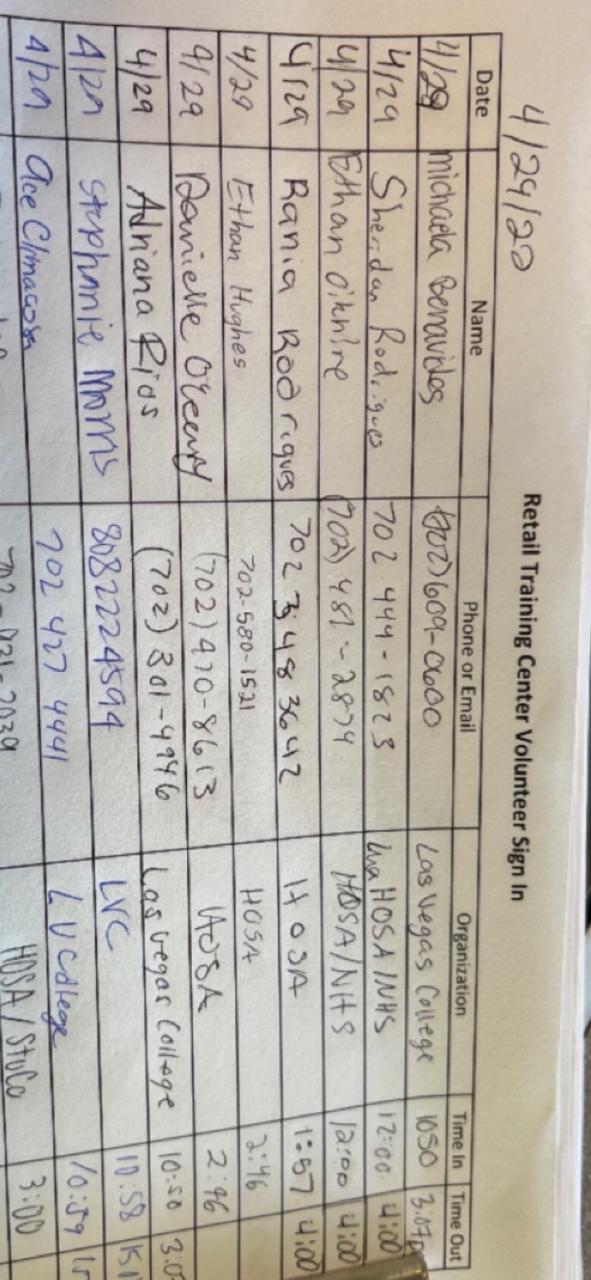 4/29/20
Retail Training Center Volunteer Sign In
Date Name Phone or Email Organization Time In Time Out
4/29 michaela Benavides (702)609-0600 Las Vegas College 1050 3:07p
4/29 Sheridan Rodrigues 702 444-1823 HOSA/NHS 12:00 4:00
4/29 Ethan (702) 481-2874 HOSA/NHS 12:00 4:00
4/29 Rania Rodrigues 702 348 3642 HOSA 1:57 4:00
4/29 Ethan Hughes 702-580-1521 HOSA 2:46
4/29 Danielle (702) 470-8613 HOSA 2:46
4/29 Adriana Rios (702) 301-4946 Las Vegas College 10:50 3:0
4/29 Stephanie Morris 8082224594 LVC 10:58
4/29 Ace Climacosa 702 427 4441 LV College 10:59
702-
HOSA/StuCo 3:00